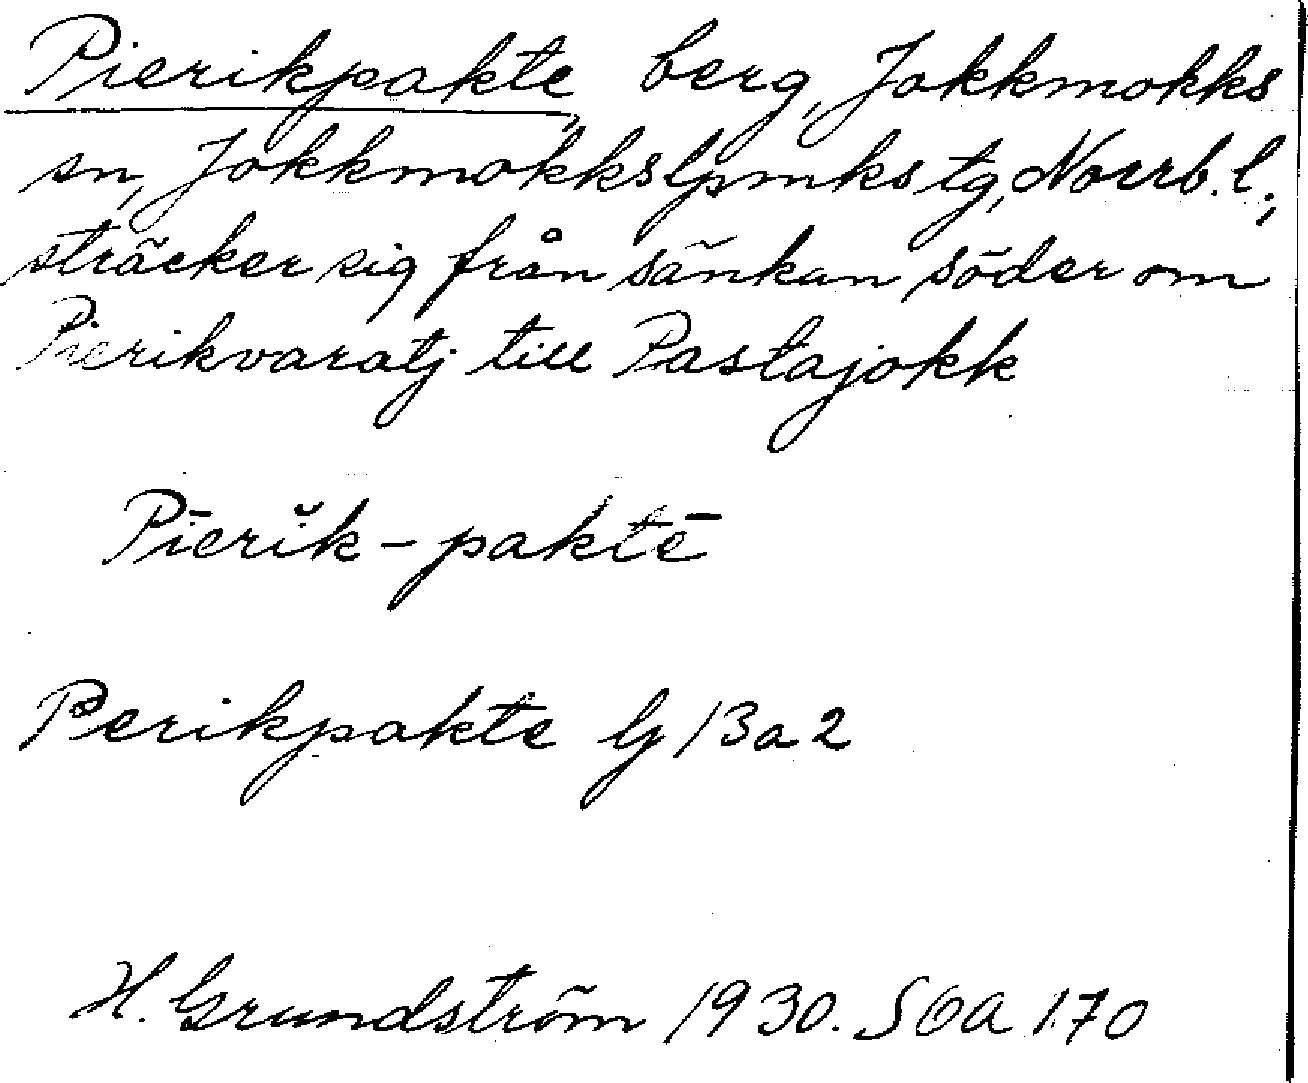 Pierikpakte, berg, Jokkmokks
sn, Jokkmokks lpmks tg, Norrb. l.;
sträcker sig från sänkan söder om
Pierikvaratj till Pastajokk
Pīerĭk-paktē
Perikpakte bj 13a2
H. Grundström 1930. SOA 170